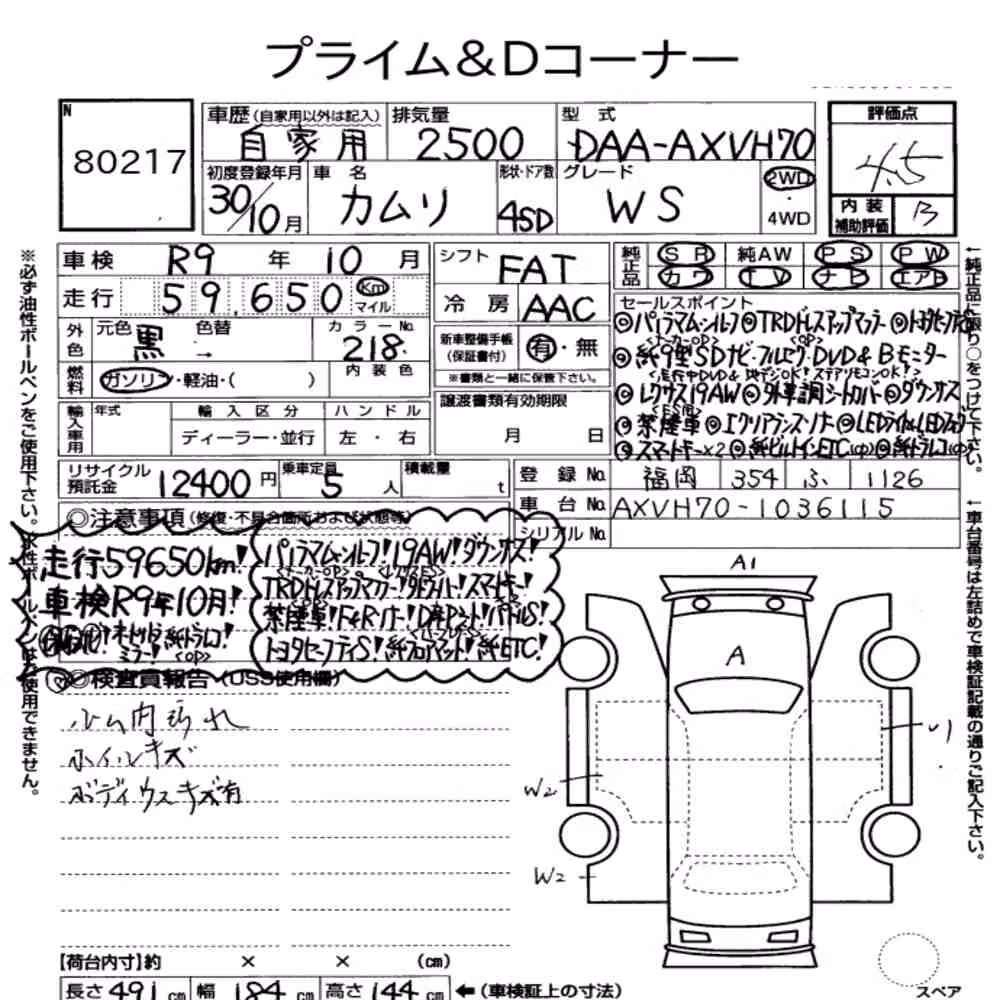 プライム&Dコーナー
N
80217
車歴(自家用以外は記入)
自家用
排気量
2500
型式
DAA-AXVH70
評価点
4.5
初度登録年月
30/10月
車名
カムリ
形状・ドア数
4SD
グレード
WS
2WD
・
4WD
内装
補助評価
B
車検 R9年 10月
走行 59,650 Km
マイル
シフト
FAT
冷房 AAC
純正品
SR 純AW PS PW
カワ TV ナビ エアB
外色
元色
黒
色替
→
カラーNo.
218
内装色
燃料
ガソリン・軽油・( )
新車整備手帳
(保証書付)
有・無
※書類と一緒に保管下さい。
セールスポイント
◎パノラマムーンルーフ◎TRDドレスアップマフラー◎トヨタセーフティS
◎純9型SDナビ・フルセグ・DVD&Bモニター
<メーカーOP> <OP>
<走行中DVD&地デジOK!ステアリモコンOK!>
◎レクサス19AW◎外車調シートカバー◎ダウンサス
<ES用>
◎禁煙車◎クリアランスソナー◎LEDライト&LEDフォグ
◎スマートキー×2◎純ビルトインETC(中)◎純ドラレコ(中)
輸入車用
年式
輸入区分
ディーラー・並行
ハンドル
左・右
譲渡書類有効期限
月 日
リサイクル
預託金
12400円
乗車定員
5人
積載量
t
登録No. 福岡 354 ふ 1126
車台No. AXVH70-1036115
シリアルNo.
◎注意事項(修復・不具合箇所および状態等)
走行59650km!
車検R9年10月!
ミラー!
<OP>
パノラマムーンルーフ!19AW!ダウンサス!
<メーカーOP> <レクサスES>
TRDドレスアップマフラー!LEDライト!スマートキー!
禁煙車!F&Rソナー!D&Pシート!パドルS!
トヨタセーフティS!純フロアマット!純ETC!
◎検査員報告(USS使用欄)
ホイルキズ
ボディウスキズ有
A1
A
U1
W2
W2
【荷台内寸】約 × × (cm)
長さ491cm 幅184cm 高さ144cm ←(車検証上の寸法)
スペア
※必ず油性ボールペンをご使用下さい。水性ボールペンはご使用できません。
←純正品に限り○をつけて下さい。
←車台番号は左詰めで車検証記載の通りご記入下さい。